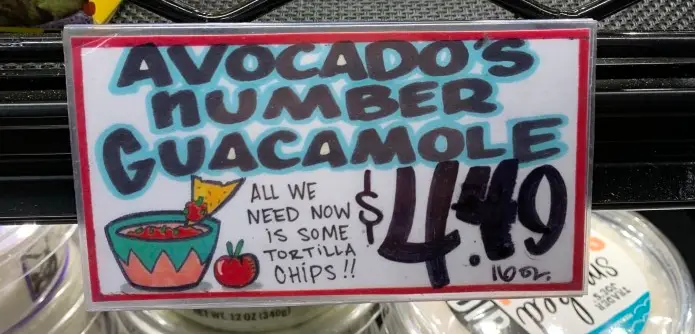 AVOCADO'S
NUMBER
GUACAMOLE
ALL WE
NEED NOW
IS SOME
TORTILLA
CHIPS!!
$4.49
16 oz.
NET WT. 12 OZ (340g)
TRADER
JOE'S